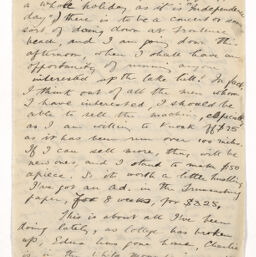 a whole holiday, as it is Independence
day. If there is to be a concert or some
sort of doing down at
beach, and I am going down this
afternoon, when I shall have an
opportunity of
interested up the lake till! In fact
I think out of all the men whom
I have interested, I should be
able to sell the machine, especially
as I am willing to knock off $25
as it has been run over 100 miles.
If I can sell more, they will be
new ones, and I stand to make $50
apiece. So it's worth a little hustling
I've got an ad. in the
paper, for 8 weeks, for $3.25.
This is about all I've been
doing lately, as College has broken
up, Edwin has gone home, Charlie
is in the White